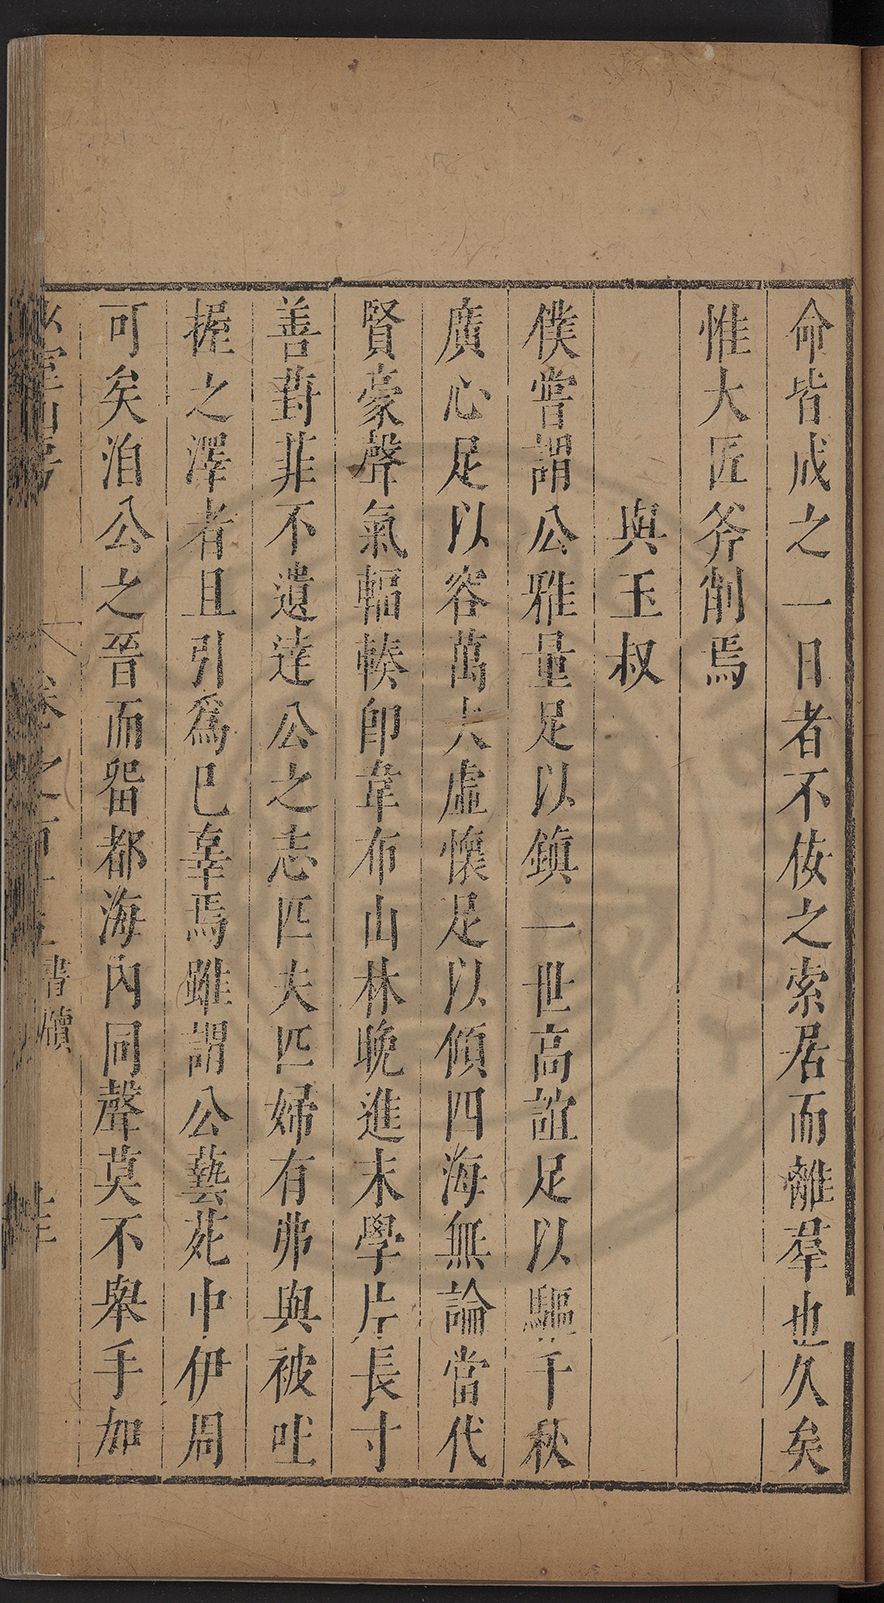 命皆成之一日者不佞之索居而離羣也久矣
惟大匠斧削焉
與王叔
僕嘗謂公雅量足以鎮一世高誼足以驅千秋
廣心足以容萬夫虛懷足以傾四海無論當代
賢豪聲氣輻輳卽韋布山林晚進末學片長寸
善葑菲不遺達公之志匹夫匹婦有弗與被吐
握之澤者且引爲已辜焉雖謂公藝苑中伊周
可矣洎公之晉而畱都海內同聲莫不舉手加
卷之百十 書牘